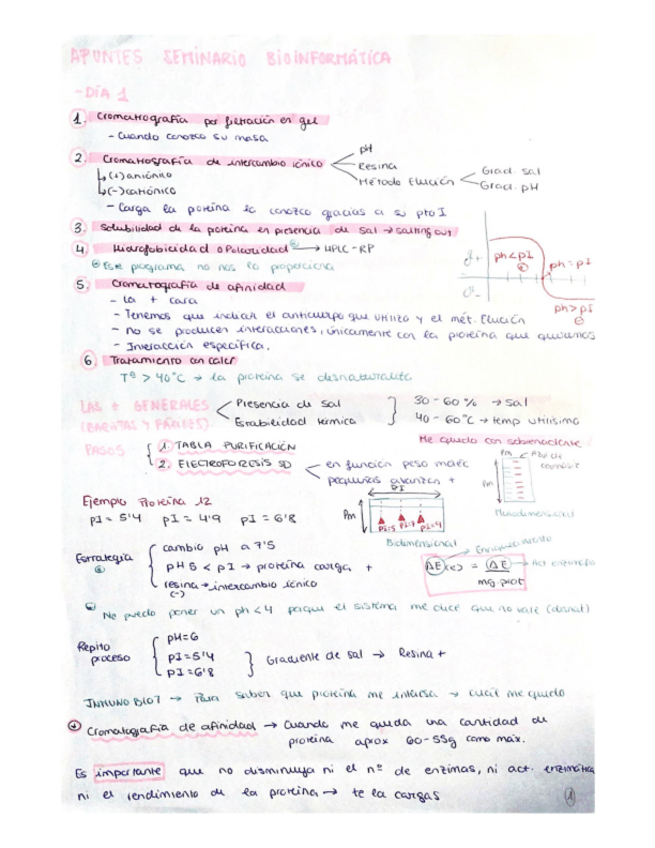 APUNTES SEMINARIO BIOINFORMÁTICA
- DÍA 1
1. Cromatografía por filtración en gel
- Cuando conozco su masa
2. Cromatografía de intercambio iónico
pH
Resina
Método Elución
Grad. sal
Grad. pH
(+) aniónico
(-) catiónico
- Carga la proteína la conozco gracias a su pto I
3. Solubilidad de la proteína en presencia de sal → salting out
4. Hidrofobicidad o Polaridad → HPLC-RP
Este programa no nos lo proporciona
ph<pI
ph=pI
ph>pI
5. Cromatografía de afinidad
- La + cara
- Tenemos que indicar el anticuerpo que utiliza y el mét. Elución
- No se producen interacciones, únicamente con la proteína que queramos
- Interacción específica.
6. Tratamiento con calor
Tª > 40°C → la proteína se desnaturaliza
LAS + GENERALES
(BARATAS Y FÁCILES)
Presencia de sal
Estabilidad térmica
30 - 60 % → sal
40 - 60°C → temp utilísima
Me quedo con sobrenadante
PASOS
1. TABLA PURIFICACIÓN
2. ELECTROFORESIS SD
en función peso molec
pequeñas avanzan +
Pm
Pm
Monodimensional
PI
Pm
pI=5
pI=7
pI=9
Bidimensional
Ejemplo Proteína 12
pI = 5'4 pI = 4'9 pI = 6'8
Estrategia
cambio pH a 7'5
pH 5 < pI → proteína carga +
resina → intercambio iónico
(-)
Enriquecimiento
AE(x) = AE → Act enzimática
mg prot
No puedo poner un ph<4 porque el sistema me dice que no vale (desnat)
Repito
proceso
pH=6
pI=5'4
pI=6'8
Gradiente de sal → Resina +
INMUNO BLOT → Para saber que proteína me interesa → cual me quedo
Cromatografía de afinidad → Cuando me queda una cantidad de
proteína aprox 60-55g como máx.
Es importante que no disminuya ni el nº de enzimas, ni act. enzimática
ni el rendimiento de la proteína → te la cargas
1